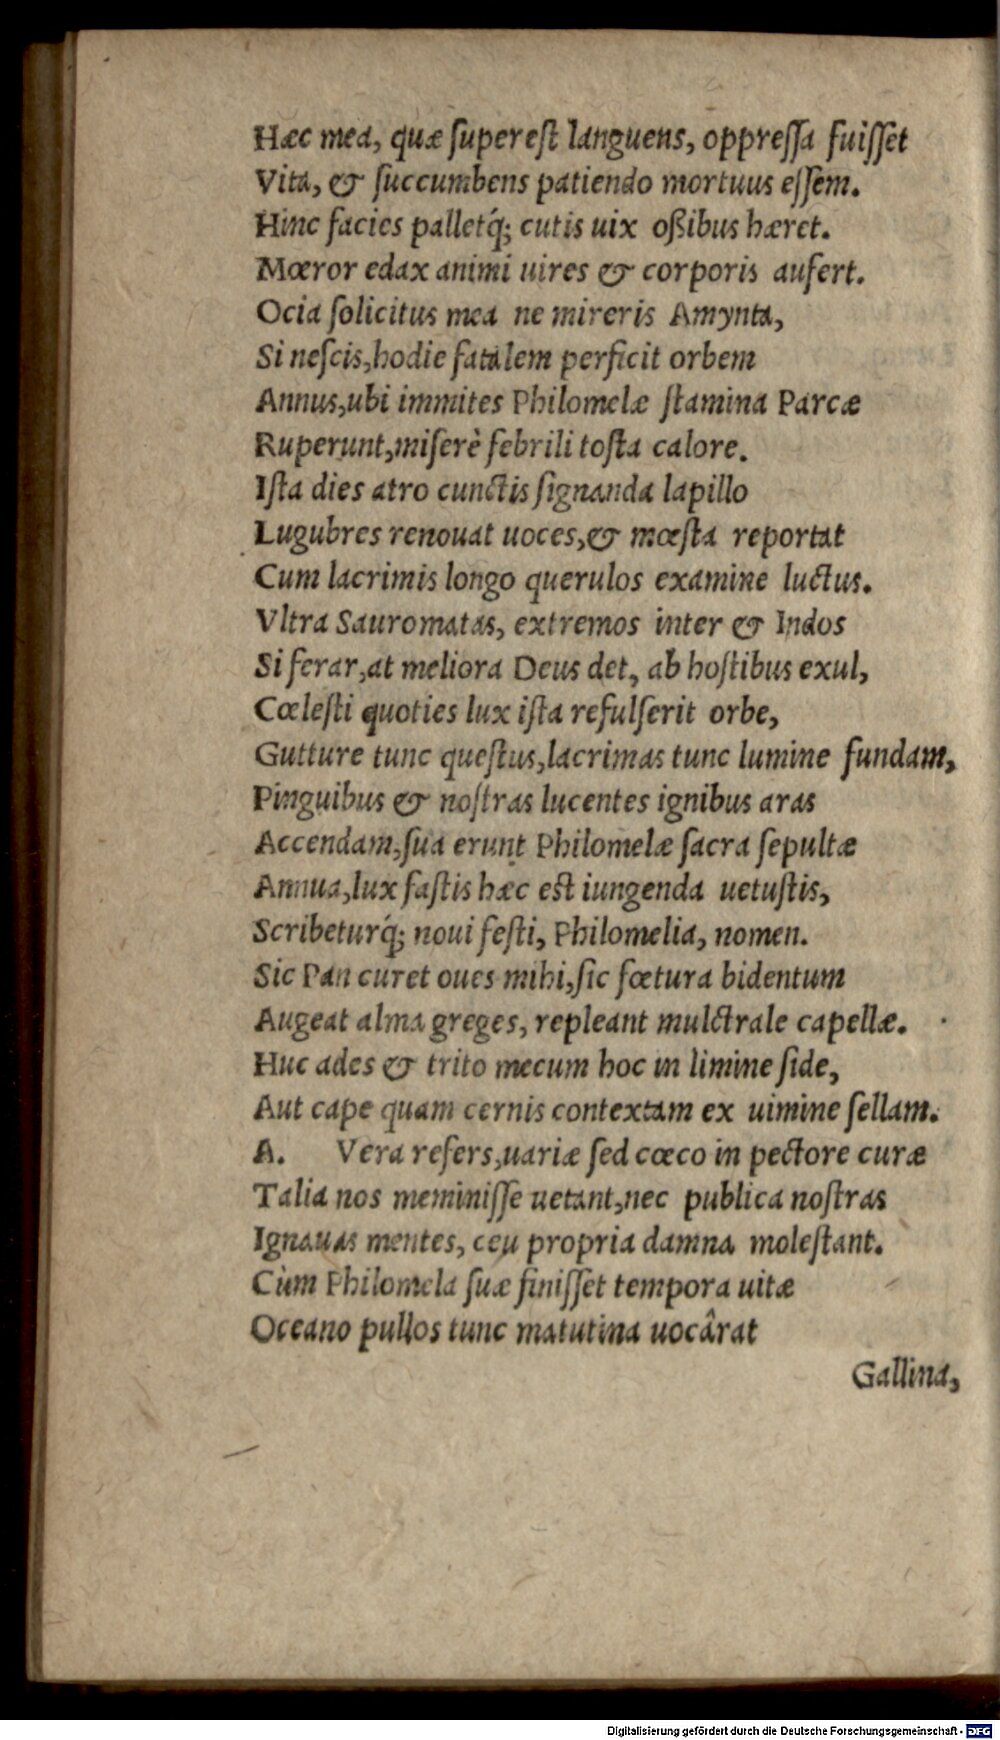 Hæc mea, quæ ſupereſt languens, oppreſſa fuiſſet
Vita, & ſuccumbens patiendo mortuus eſſem.
Hinc facies palletq́; cutis uix oßibus hæret.
Mœror edax animi uires & corporis aufert.
Ocia ſolicitus mea ne mireris Amynta,
Si neſcis, hodie fatalem perficit orbem
Annus, ubi immites Philomelæ ſtamina Parcæ
Ruperunt, miſerè febrili toſta calore.
Iſta dies atro cunctis ſignanda lapillo
Lugubres renouat uoces, & mœſta reportat
Cum lacrimis longo querulos examine luctus.
Vltra Sauromatas, extremos inter & Indos
Si ferar, at meliora Deus det, ab hoſtibus exul,
Cœleſti quoties lux iſta refulſerit orbe,
Gutture tunc queſtus, lacrimas tunc lumine fundam,
Pinguibus & noſtras lucentes ignibus aras
Accendam, ſua erunt Philomelæ ſacra ſepultæ
Annua, lux faſtis hæc eſt iungenda uetuſtis,
Scribeturq́; noui feſti, Philomelia, nomen.
Sic Pan curet oues mihi, ſic fœtura bidentum
Augeat alma greges, repleant mulctrale capellæ.
Huc ades & trito mecum hoc in limine ſide,
Aut cape quam cernis contextam ex uimine ſellam.
A. Vera refers, uariæ ſed cœco in pectore curæ
Talia nos meminiſſe uetant, nec publica noſtras
Ignauas mentes, ceu propria damna moleſtant.
Cùm Philomela ſuæ finiſſet tempora uitæ
Oceano pullos tunc matutina uocârat
Gallina,
Digitalisierung gefördert durch die Deutsche Forschungsgemeinschaft - DFG